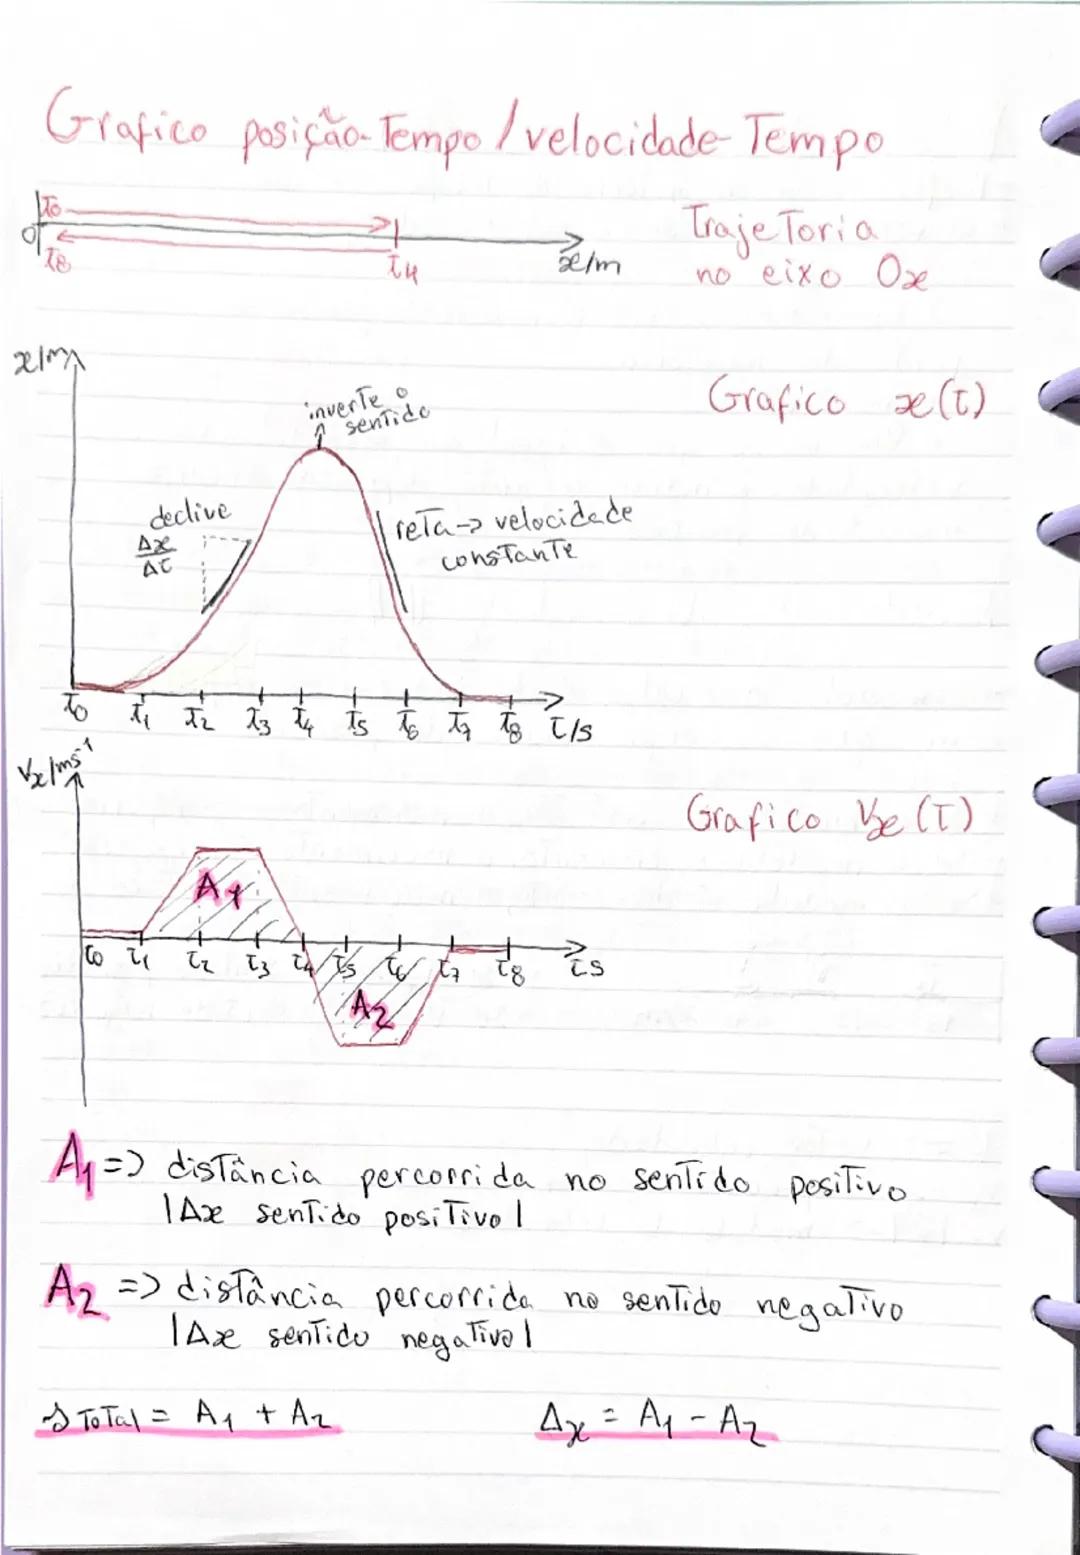 Grafico posição-Tempo/velocidade-Tempo
t0
0
t8
t4
x/m
Trajetoria
no eixo Ox
x/m
Grafico x(t)
inverte o
sentido
declive
Δx
Δt
reta -> velocidade
constante
t0 t1 t2 t3 t4 t5 t6 t7 t8 t/s
Vx/ms⁻¹
Grafico Vx(t)
A1
t0 t1 t2 t3 t4 t5 t6 t7 t8 ts
A2
A1 => distância percorrida no sentido positivo
|Δx sentido positivo|
A2 => distância percorrida no sentido negativo
|Δx sentido negativo|
s Total = A1 + A2
Δx = A1 - A2